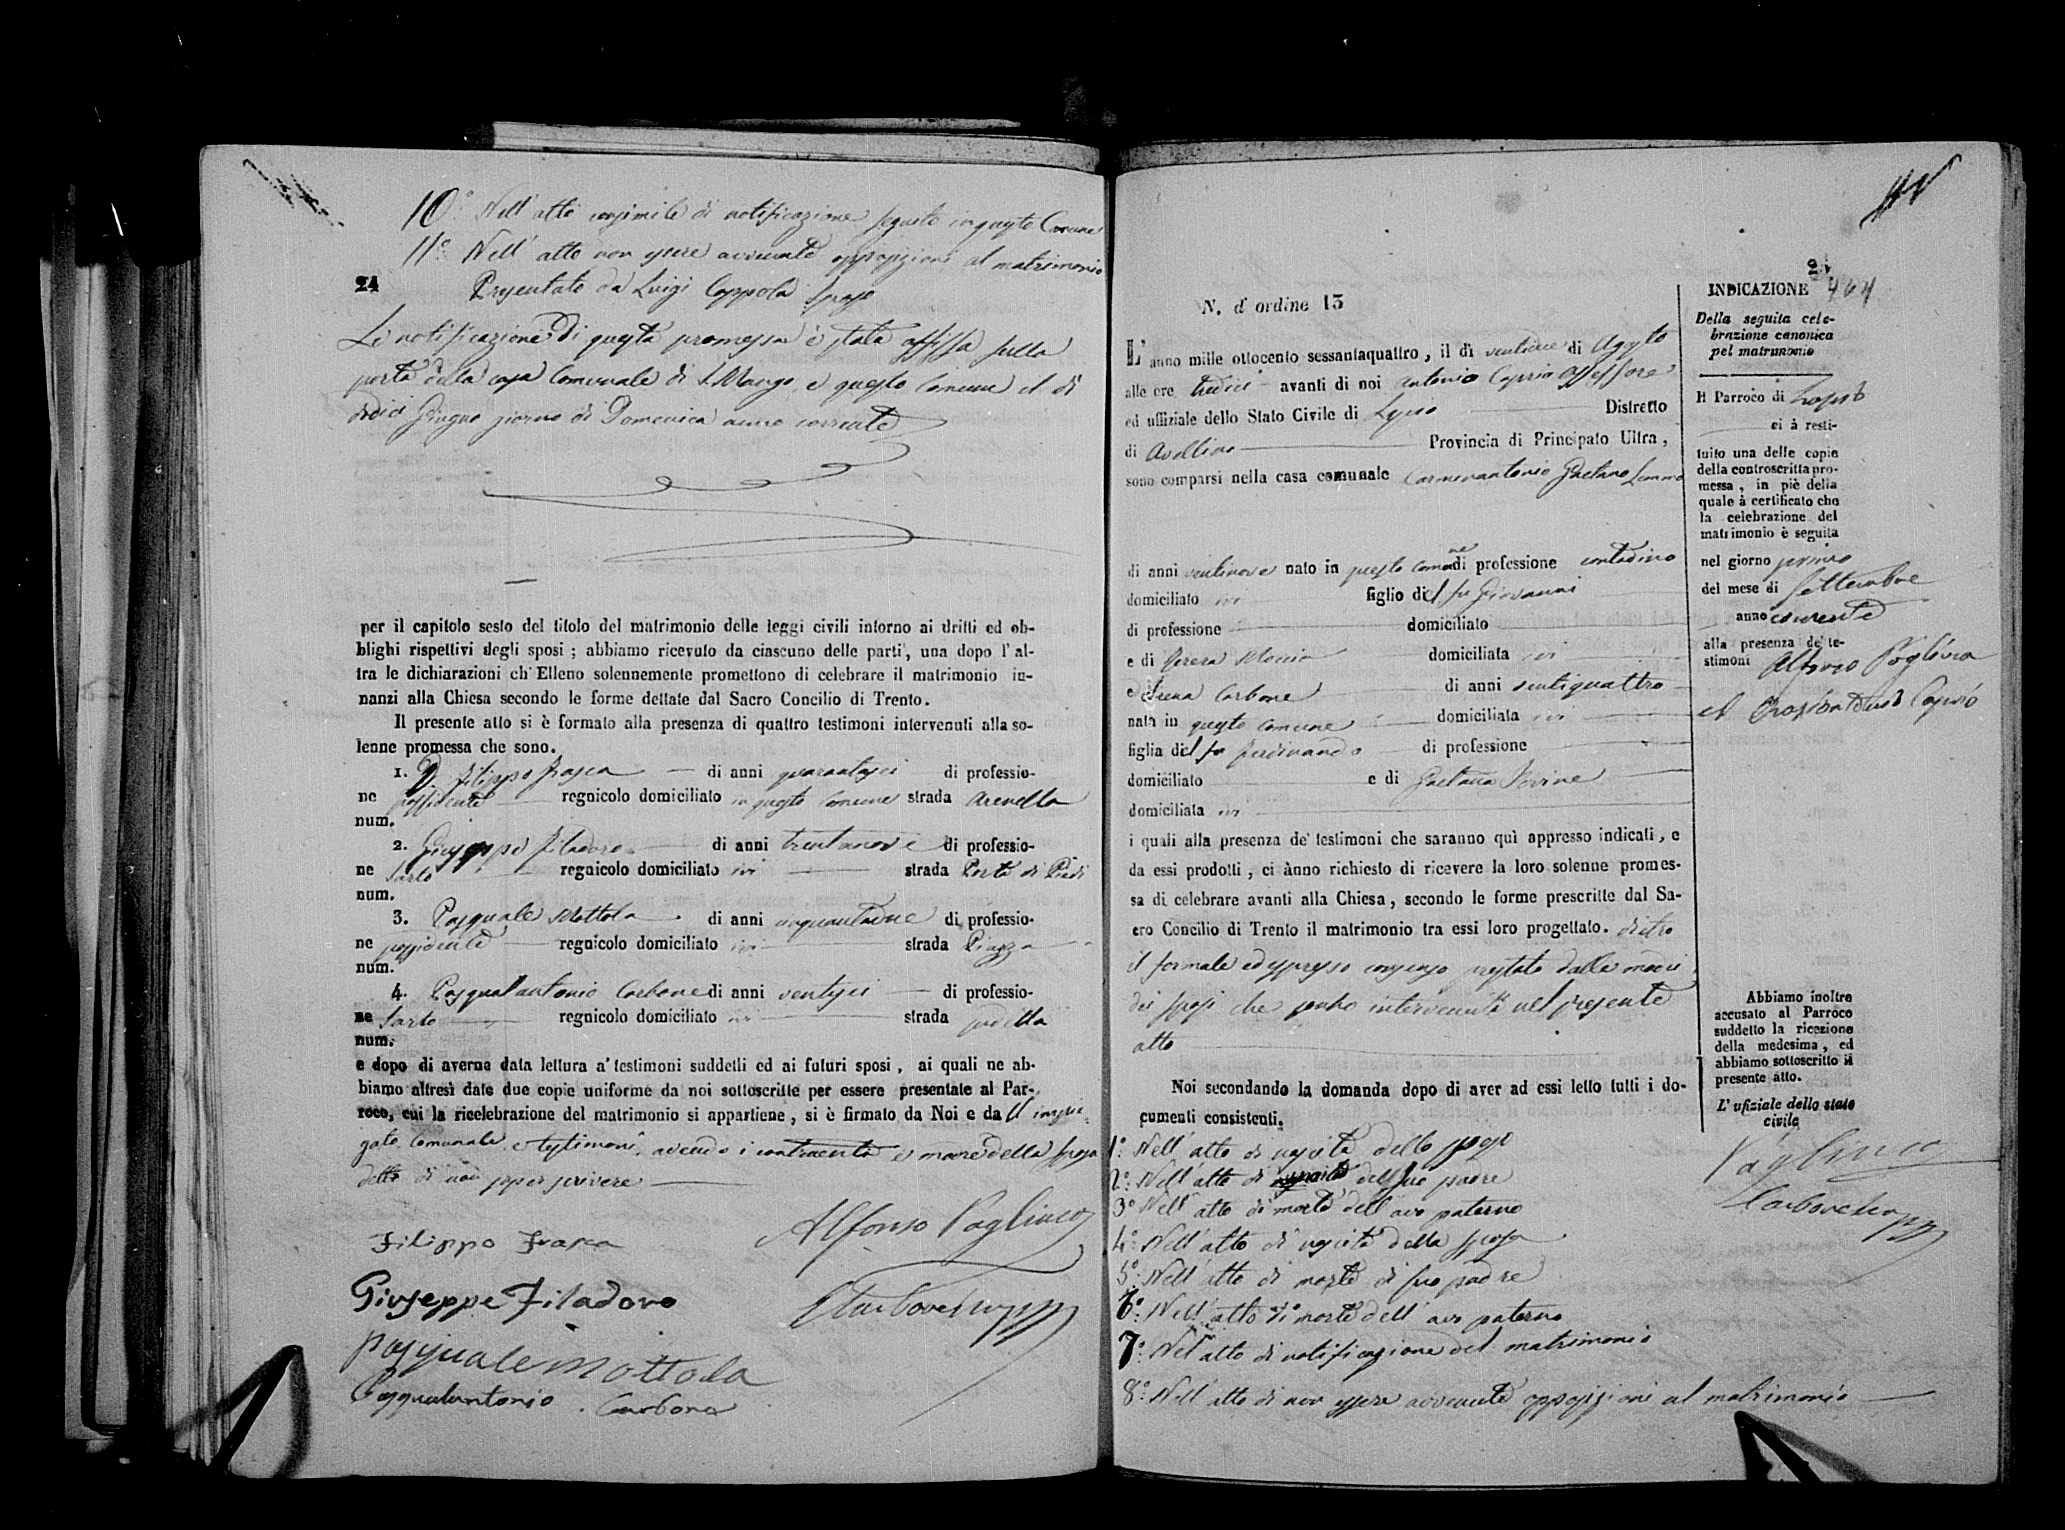 10.° Nell' atto consimile di notificazione seguito in questo Comune
11.° Nell' atto non essere avvenute opposizioni al matrimonio
24
Presentato da Luigi Coppola sposo
La notificazione di questa promessa è stata affissa sulla
porta della casa Comunale di S. Mango, e questo Comune il dì
dodici Giugno giorno di Domenica anno corrente
per il capitolo sesto del titolo del matrimonio delle leggi civili intorno ai dritti ed ob-
blighi rispettivi degli sposi ; abbiamo ricevuto da ciascuno delle parti, una dopo l' al-
tra le dichiarazioni ch' Elleno solennemente promettono di celebrare il matrimonio in-
nanzi alla Chiesa secondo le forme dettate dal Sacro Concilio di Trento.
Il presente atto si è formato alla presenza di quattro testimoni intervenuti alla so-
lenne promessa che sono.
1. D. Filippo Frasca di anni quarantasei di professio-
ne possidente regnicolo domiciliato in questo Comune strada Arenella
num.
2. Giuseppe Filadoro di anni trentanove di professio-
ne Sarto regnicolo domiciliato ivi strada Porta di Piedi
num.
3. Pasquale Mottola di anni cinquantanove di professio-
ne possidente regnicolo domiciliato ivi strada Piazza
num.
4. Pasqualantonio Carbone di anni ventisei di professio-
ne Sarto regnicolo domiciliato ivi strada
num.
e dopo di averne data lettura a' testimoni suddetti ed ai futuri sposi, ai quali ne ab-
biamo altresì date due copie uniforme da noi sottoscritte per essere presentate al Par-
roco, cui la ricelebrazione del matrimonio si appartiene, si è firmato da Noi e da ll' impie
gato comunale e testimoni, avendo i contraenti e madre della sposa
detto di non saper scrivere
Alfonso Pagliuca
Filippo Frasca
Giuseppe Filadoro
Pasquale Mottola
Pasqualantonio Carbone
N. d' ordine 13
L' anno mille ottocento sessantaquattro, il dì ventuno di Agosto
alle ore tredici avanti di noi Antonio Capria Assessore
ed uffiziale dello Stato Civile di Lapio Distretto
di Avellino Provincia di Principato Ultra,
sono comparsi nella casa comunale Carmenantonio Gaetano Lemmo
di anni ventinove nato in questo Comune di professione contadino
domiciliato ivi figlio del fu Giovanni
di professione domiciliato
e di Teresa Moccia domiciliata ivi
e Irena Carbone di anni ventiquattro
nata in questo Comune domiciliata ivi
figlia del fu Ferdinando di professione
domiciliato e di Gaetana Iovine
domiciliata ivi
i quali alla presenza de' testimoni che saranno quì appresso indicati, e
da essi prodotti, ci ànno richiesto di ricevere la loro solenne promes-
sa di celebrare avanti alla Chiesa, secondo le forme prescritte dal Sa-
cro Concilio di Trento il matrimonio tra essi loro progettato. dietro
il formale ed espresso consenso prestato dalle madri
dei sposi che sono intervenute nel presente
atto
Noi secondando la domanda dopo di aver ad essi letto tutti i do-
cumenti consistenti.
1.° Nell' atto di nascita dello sposo
2.° Nell' atto di morte del suo padre
3.° Nell' atto di morte dell' avo paterno
4.° Nell' atto di nascita della sposa
5.° Nell' atto di morte di suo padre
6.° Nell' atto di morte dell' avo paterno
7.° Nell' atto di notificazione del matrimonio
8.° Nell' atto di non essere avvenute opposizioni al matrimonio
INDICAZIONE
Della seguita cele-
brazione canonica
pel matrimonio
Il Parroco di Lapio
ci à resti-
tuito una delle copie
della controscritta pro-
messa, in piè della
quale à certificato che
la celebrazione del
matrimonio è seguita
nel giorno primo
del mese di Settembre
anno corrente
alla presenza de' te-
stimoni Alfonso Pagliuca
Abbiamo inoltre
accusato al Parroco
suddetto la ricezione
della medesima, ed
abbiamo sottoscritto il
presente atto.
L' ufiziale dello stato
civile
Pagliuca